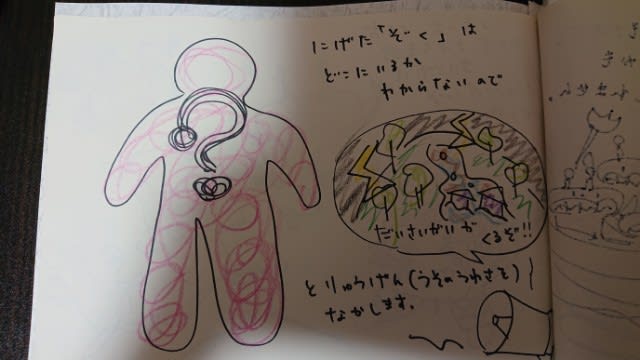 にげた「ぞく」は
どこにいるか
わからないので
だいさいがいが
くるぞ!!
とりゅうげん(うそのうわさを)
ながします。